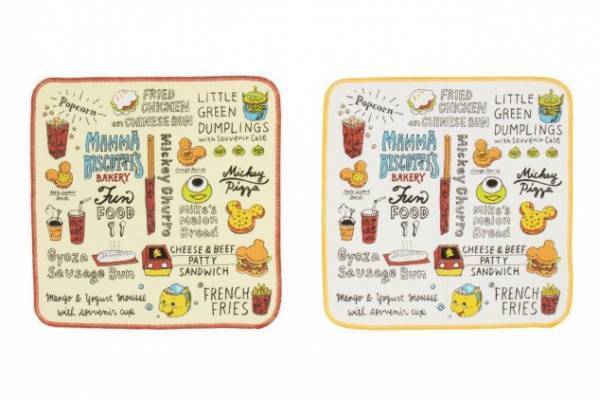 Popcorn
FRIED
CHICKEN
on CHINESE BUN
LITTLE
GREEN
DUMPLINGS
with Souvenir Case
MAMMA
BISCOTTI'S
BAKERY
Mickey Churro
Mickey
Pizza
Fun
FOOD
Mike's
Melon
Bread
Gyoza
Sausage Bun
CHEESE & BEEF
PATTY
SANDWICH
Mango & Yogurt Mousse
with souvenir cup
FRENCH
FRIES
Popcorn
FRIED
CHICKEN
on CHINESE BUN
LITTLE
GREEN
DUMPLINGS
with Souvenir Case
MAMMA
BISCOTTI'S
BAKERY
Mickey Churro
Mickey
Pizza
Fun
FOOD
Mike's
Melon
Bread
Gyoza
Sausage Bun
CHEESE & BEEF
PATTY
SANDWICH
Mango & Yogurt Mousse
with souvenir cup
FRENCH
FRIES